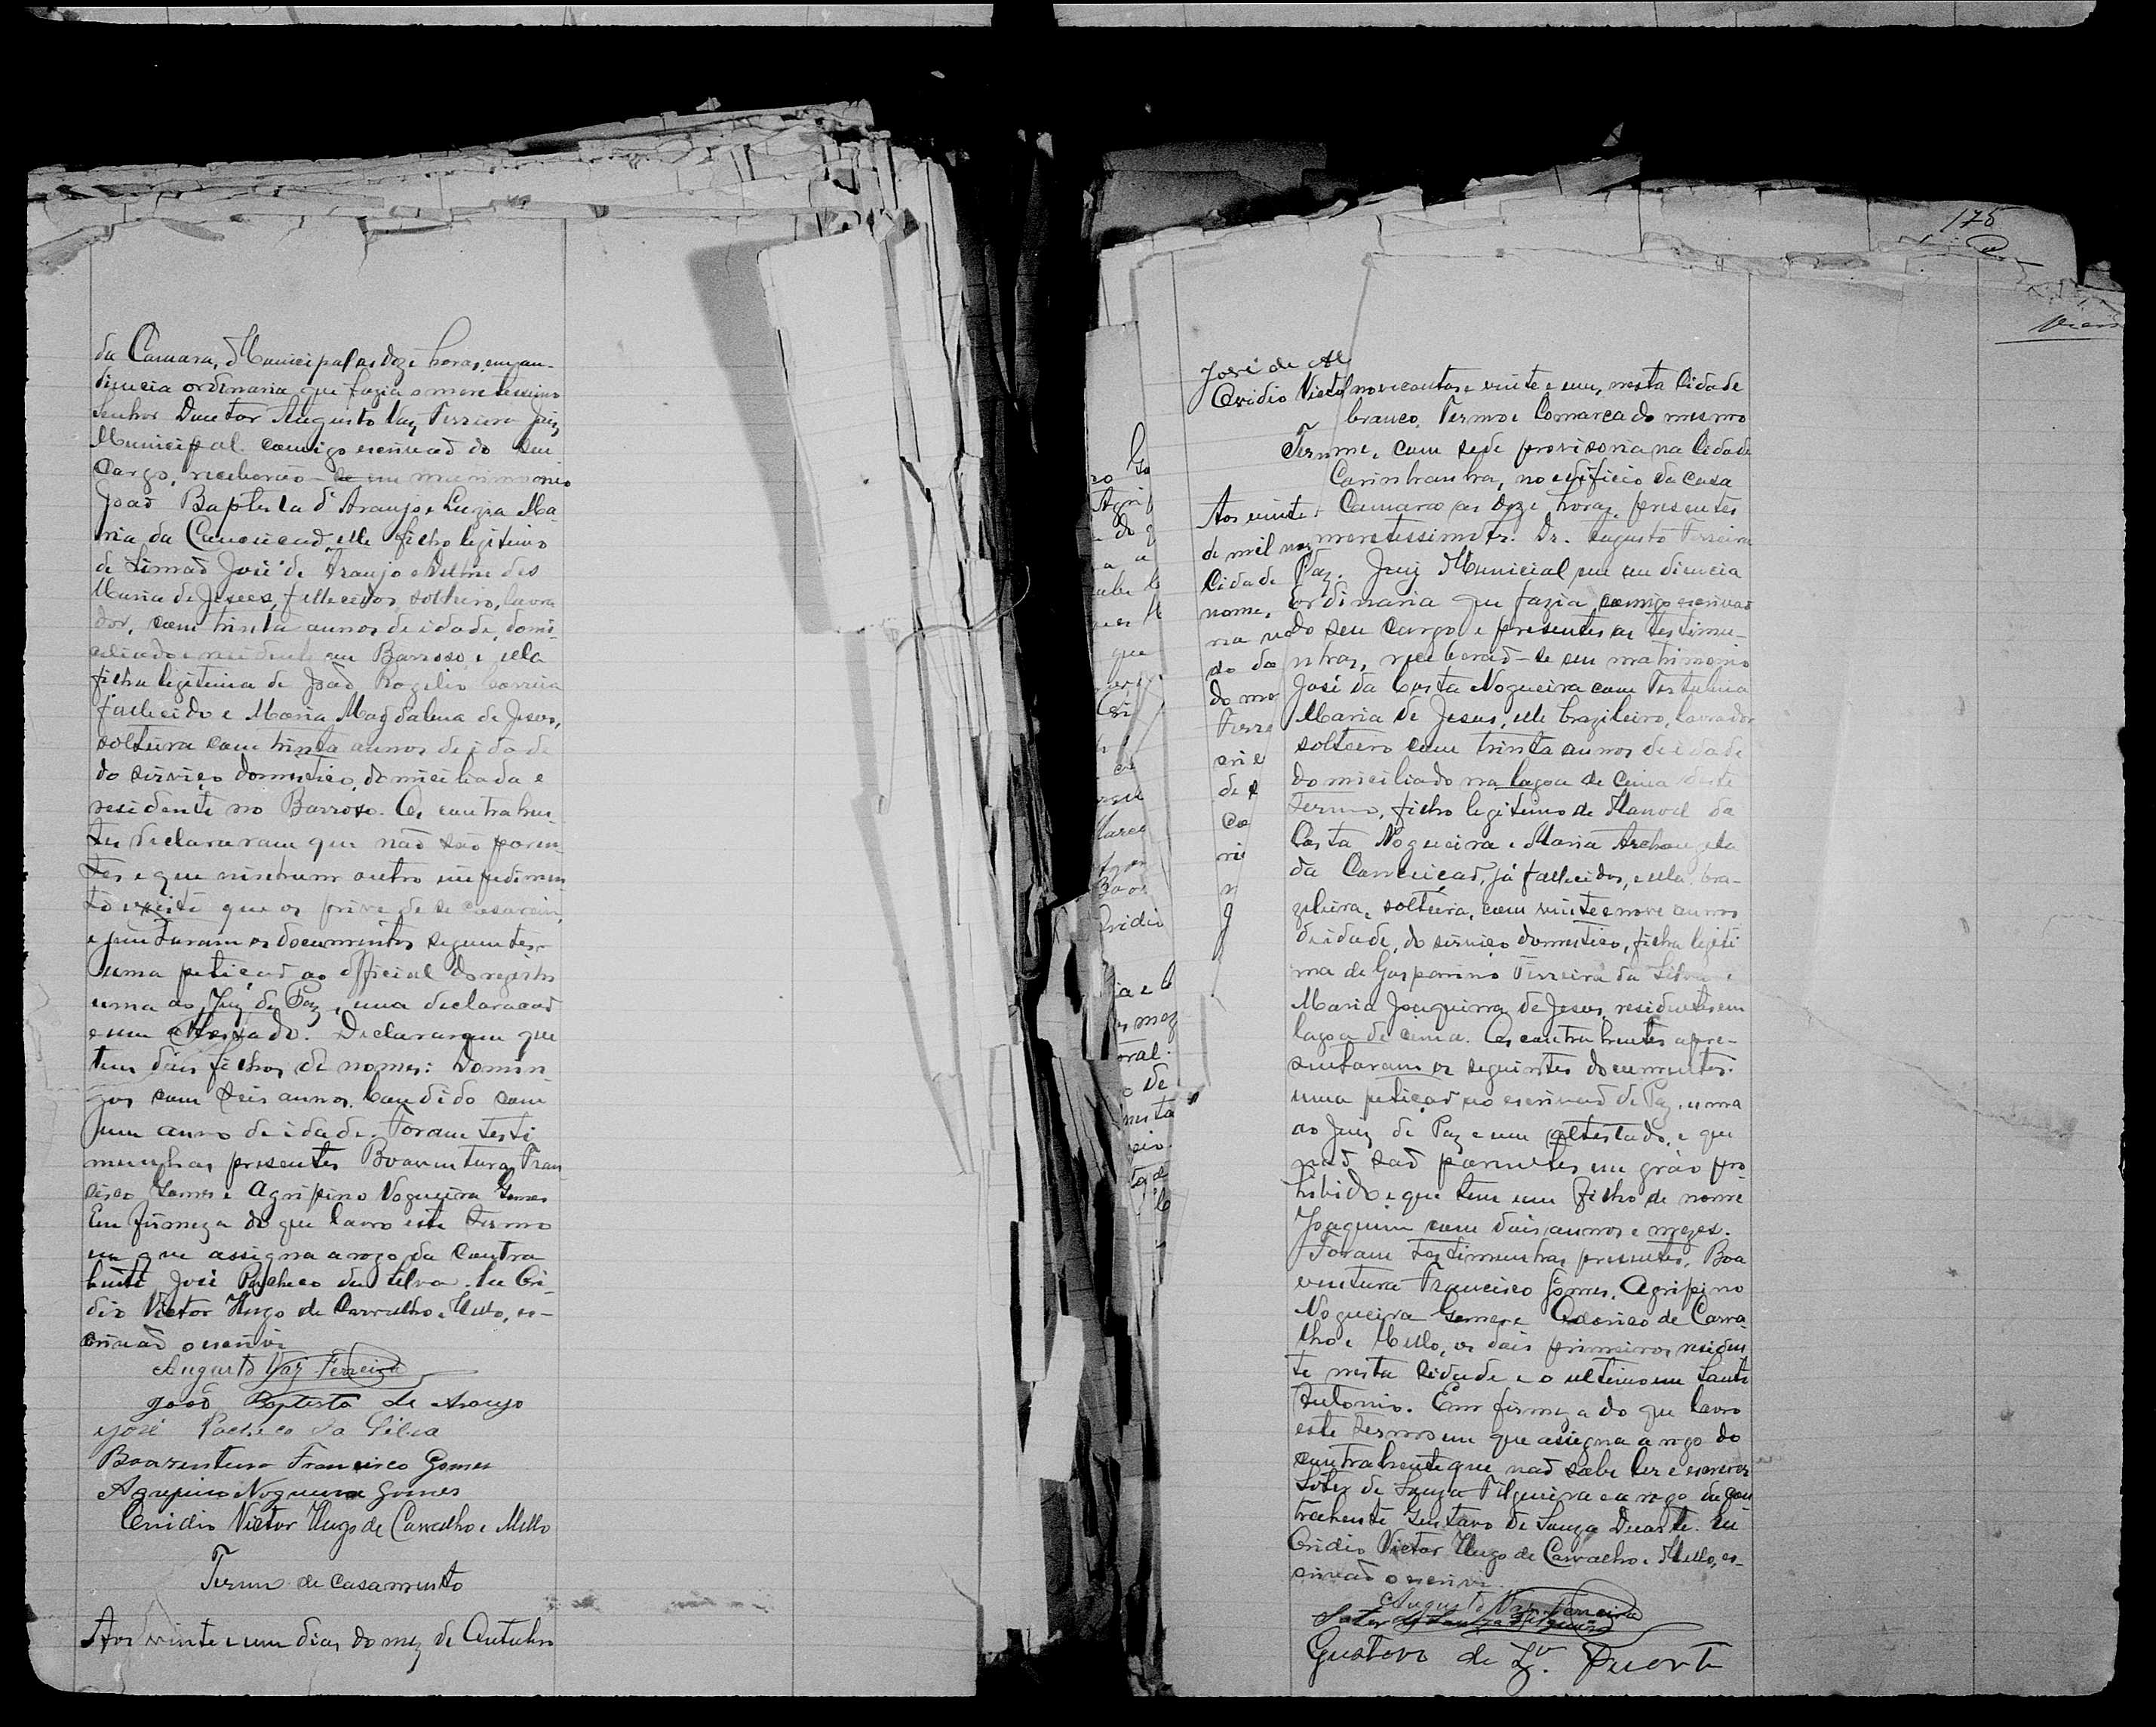 da Camara, Municipal as doze horas, em au-
diencia ordinaria que fazia o meretissimo
Senhor Doutor Augusto Vaz Ferreira Juiz
Municipal comigo escrivaõ do seu
Cargo, receberão-se em matrimonio
Joaõ Baptista d'Araujo e Luzia Ma-
ria da Conceicaõ, elle filho legitimo
de Simaõ José de Araujo e
Maria de Jesus, fallecidos, solteiro, lavra
dor, com trinta annos de idade, domi-
ciliado e residente em Barroso, e ella
filha legitima de Joaõ Rogelio Correia
fallecido e Maria Magdalena de Jesus,
solteira com trinta annos de idade
do serviço domestico, domiciliada e
residente no Barroso. Os contrahen-
tes declararam que naõ saõ paren-
tes e que ninhum outro impedimen
to existe que os prive de se casarem,
e juntaram os documentos seguintes-
uma peticaõ ao official do registro
uma ao Juiz de Paz, uma declaracaõ
e um attestado. Declararam que
tem dois filhos de nomes: Domin-
gos com seis annos, Candido com
um anno de idade. Foram testi
munhas presentes Boaventura Fran
cisco Gomes e Agripino Nogueira Gomes
Em firmeza do que lavro este termo
em que assigna a rogo da contra
hente José Pacheco da Silva. Eu Ovi-
dio Victor Hugo de Carvalho e Mello, es-
crivaõ o escrivi
Augusto Vaz Ferreira
Joaõ Baptista de Araujo
José Pacheco da Silva
Boaventura Francisco Gomes
Agripino Nogueira Gomes
Ovidio Victor Hugo de Carvalho e Mello
Termo de casamento
Aos vinte e um dias do mez de Outubro
175
José de Al
Ovidio Victo
Termo
Aos vinte e
de mil no
Cidade
nome,
na
do da
do me
Ferre
novecentos e vinte e um, nesta Cidade
branco, Termo e Comarca do mesmo
me, com sede provisoria na Cidade
Carinhanha, no edificio da casa
Camara as doze horas, presentes
meretessimo Sr. Dr. Augusto Ferreira
Paz. Juiz Municial em audiencia
ordinaria que fazia, comigo escrivaõ
do seu cargo e presentes as testimu-
nhas, receberaõ-se em matrimonio
José da Costa Nogueira com Tertulina
Maria de Jesus, elle brazileiro, lavrador
solteiro com trinta annos de idade
domiciliado na lagoa de cima deste
Termo, filho legitimo de Manoel da
Costa Nogueira e Maria Archangela
da Conceicaõ, já fallecidos, e ella, bra-
zileira, solteira, com vinte e nove annos
de idade, do serviço domestico, filha legiti
ma de Gasparino Ferreira da Silva e
Maria Joaquina de Jesus, residentes em
lagoa de cima. Os contrahentes apre-
sentaram os seguintes documentos:
uma peticaõ ao escrivaõ de Paz, uma
ao Juiz de Paz e um attestado, e que
naõ saõ parentes em gráo pro
hibido e que tem um filho de nome
Joaquim com dois annos e mezes.
Foram testimunhas presentes, Boa
ventura Francisco Gomes, Agripino
Nogueira Gomes e de Carva
lho e Mello, os dois primeiros residen
te nesta Cidade e o ultimo em Santo
Antonio. Em firmeza do que lavro
este termo em que assigna a rogo do
contrahente que naõ sabe ler e escrever
Soter de Souza Filgueira e a rogo da con
trahente Gustavo de Souza Duarte. Eu
Ovidio Victor Hugo de Carvalho e Mello, es-
crivaõ o escrivi
Augusto Vaz Ferreira
Soter de Souza Filgueira
Gustavo de Duarte